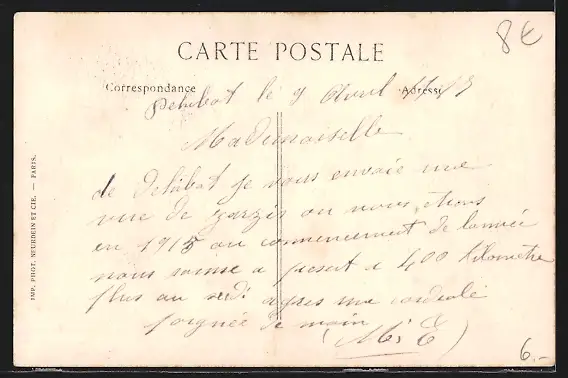 8€
CARTE POSTALE
Correspondance
Adresse
Dehibat le 9 Avril
Mademoiselle
de Dehibat je vous envoie une
vue de zarzis ou nous etions
en 1915 au commencement de lannée
nous somme a present a 400 kilometre
plus au sud. agrée une cordiale
poignée de main
IMP. PHOT. NEURDEIN ET CIE. — PARIS.
6.-